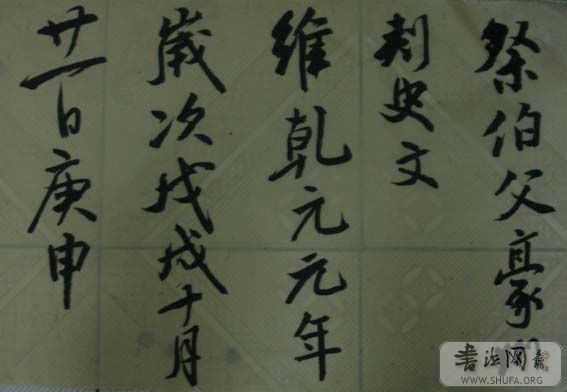 祭伯父豪州
刺史文
維乾元元年
歲次戊戌十月
廿一日庚申
書法网
WWW.SHUFA.ORG